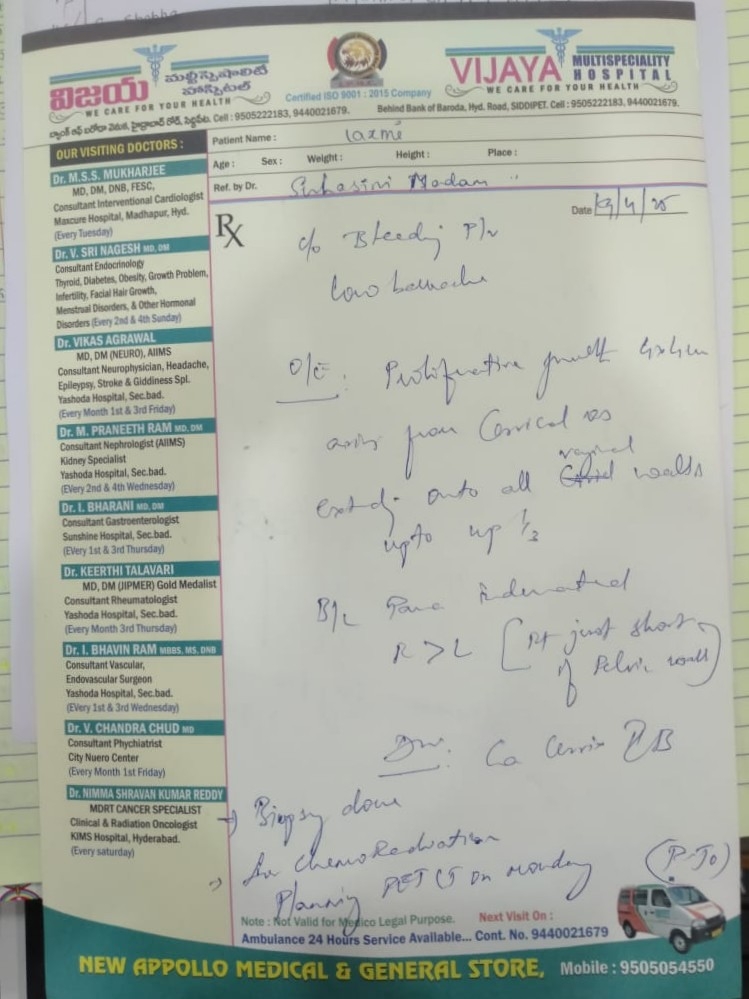 విజయ మల్టీస్పెషాలిటీ హాస్పిటల్
WE CARE FOR YOUR HEALTH
Certified ISO 9001 : 2015 Company
VIJAYA MULTISPECIALITY HOSPITAL
WE CARE FOR YOUR HEALTH
బ్యాంక్ ఆఫ్ బరోడా వెనుక, హైద్రాబాద్ రోడ్, సిద్దిపేట. Cell : 9505222183, 9440021679.
Behind Bank of Baroda, Hyd. Road, SIDDIPET. Cell : 9505222183, 9440021679.
OUR VISITING DOCTORS :
Dr. M.S.S. MUKHARJEE
MD, DM, DNB, FESC,
Consultant Interventional Cardiologist
Maxcure Hospital, Madhapur, Hyd.
(Every Tuesday)
Dr. V. SRI NAGESH MD, DM
Consultant Endocrinology
Thyroid, Diabetes, Obesity, Growth Problem,
Infertility, Facial Hair Growth,
Menstrual Disorders, & Other Hormonal
Disorders (Every 2nd & 4th Sunday)
Dr. VIKAS AGRAWAL
MD, DM (NEURO), AIIMS
Consultant Neurophysician, Headache,
Epileypsy, Stroke & Giddiness Spl.
Yashoda Hospital, Sec.bad.
(Every Month 1st & 3rd Friday)
Dr. M. PRANEETH RAM MD, DM
Consultant Nephrologist (AIIMS)
Kidney Specialist
Yashoda Hospital, Sec.bad.
(EVery 2nd & 4th Wednesday)
Dr. I. BHARANI MD, DM
Consultant Gastroenterologist
Sunshine Hospital, Sec.bad.
(EVery 1st & 3rd Thursday)
Dr. KEERTHI TALAVARI
MD, DM (JIPMER) Gold Medalist
Consultant Rheumatologist
Yashoda Hospital, Sec.bad.
(Every Month 3rd Thursday)
Dr. I. BHAVIN RAM MBBS, MS, DNB
Consultant Vascular,
Endovascular Surgeon
Yashoda Hospital, Sec.bad.
(EVery 1st & 3rd Wednesday)
Dr. V. CHANDRA CHUD MD
Consultant Phychiatrist
City Nuero Center
(Every Month 1st Friday)
Dr. NIMMA SHRAVAN KUMAR REDDY
MDRT CANCER SPECIALIST
Clinical & Radiation Oncologist
KIMS Hospital, Hyderabad.
(Every saturday)
Patient Name : Laxmi
Age : Sex : Weight : Height : Place :
Ref. by Dr. Suhasini Madam
Rx
Date 19/4/25
c/o Bleeding P/v
Low backache
O/E : Proliferative growth 4x4cm
arising from Cervical os
extdg onto all vaginal walls
upto up 1/3
B/L Para indurated
R > L [Rt just short
of Pelvic wall]
Ca Cervix II B
→ Biopsy done
→ Chemo Radiation
Planning PET CT on monday (P.T.O)
Note : Not Valid for Medico Legal Purpose. Next Visit On :
Ambulance 24 Hours Service Available... Cont. No. 9440021679
NEW APPOLLO MEDICAL & GENERAL STORE, Mobile : 9505054550